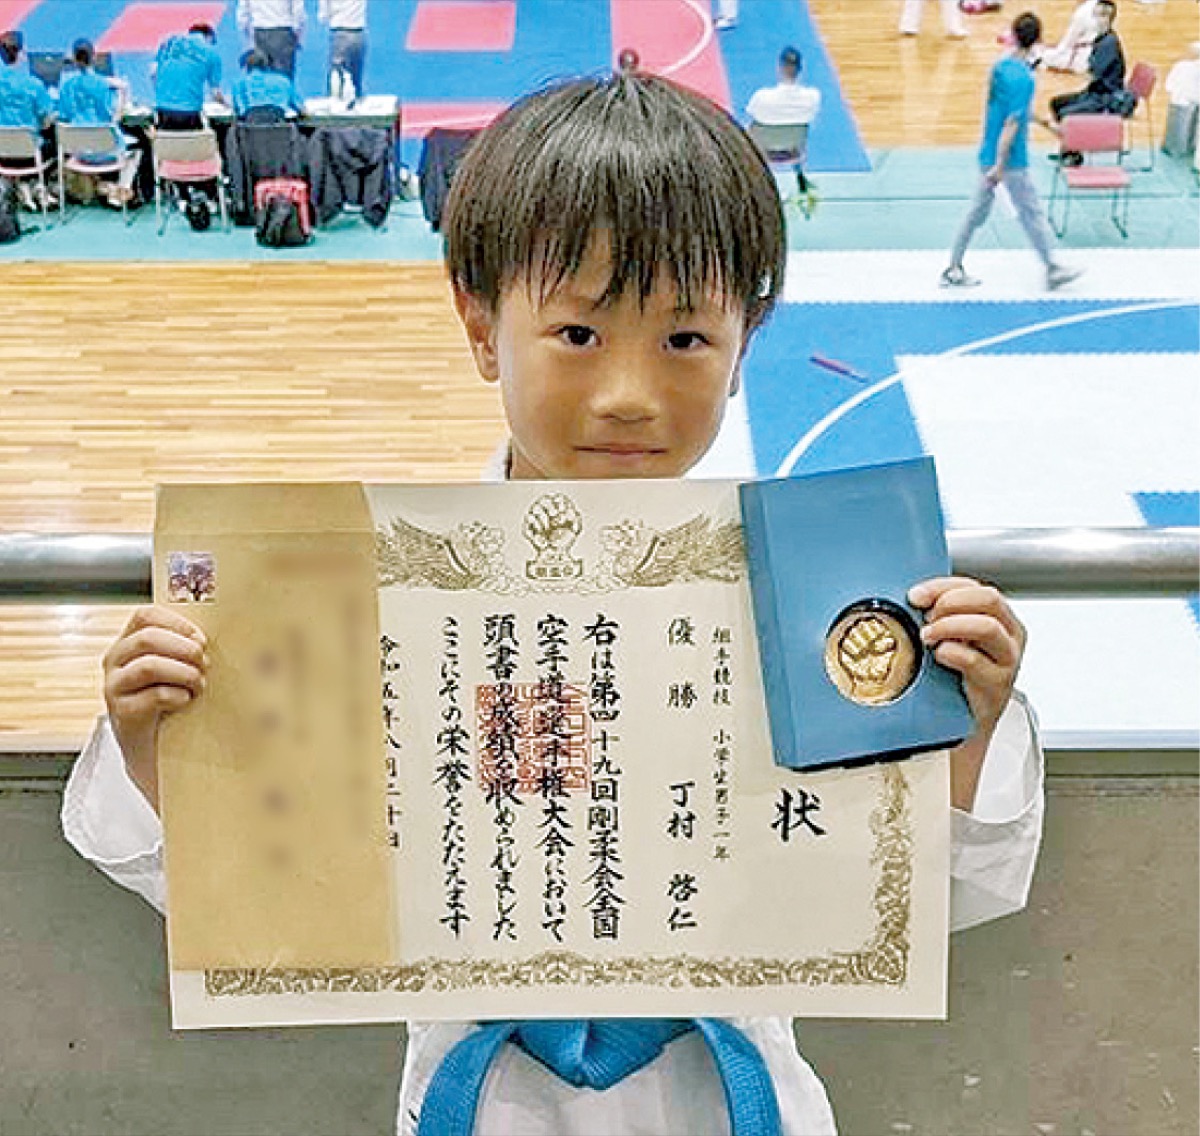 状
組手競技 小学生男子一年
優勝 丁村 啓仁
右は第四十九回剛柔会全国
空手道選手権大会において
頭書の成績を収められました
ここにその栄誉をたたえます
令和五年八月二十日